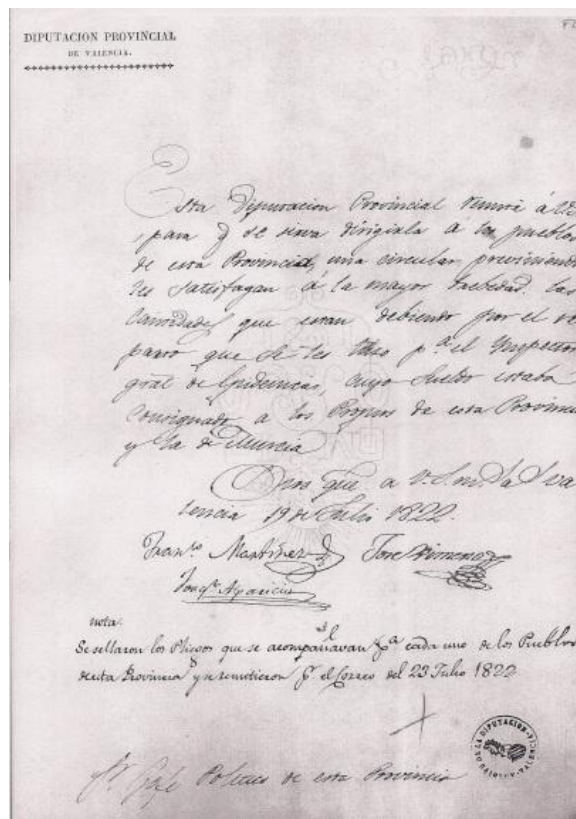 DIPUTACION PROVINCIAL
DE VALENCIA.
Esta Diputacion Provincial remite á VS
para q se sirva dirigirla a los pueblos
de esta Provincia, una circular, previniendo
les satisfagan á la mayor brebedad las
Cantidades que estan debiendo por el re
parto que se les hizo pª el Inspector
gral de Epidemias, cuyo sueldo estaba
consignado a los Propios de esta Provincia
y la de Murcia
Dios gue a V.S. m. a Va
lencia 19 de Julio 1822.
Franco Martinez Jose Ximeno
Joaqn Aparicio
nota.
Se sellaron los Pliegos que se acompañavan pª cada uno de los Pueblos
de esta Provincia y se remitieron pr el Correo del 23 Julio 1822
DIPUTACION
Sr Gefe Politico de esta Provincia